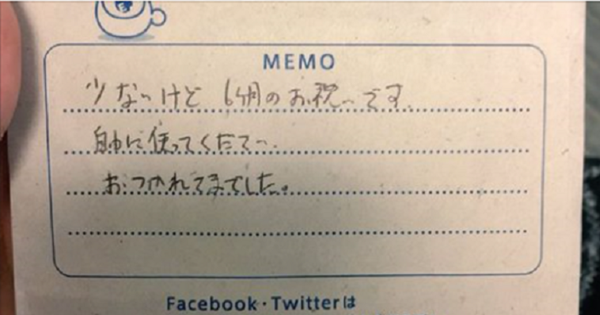 MEMO
少ないけど 6ヶ月のお祝いです
自由に使ってください
おつかれさまでした。
Facebook・Twitterは